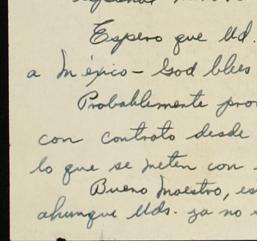 Espero que Ud.
a México - God bles
Probablemente pro
con contrato desde
lo que se meten con
Bueno Maestro, es
ahunque Uds. ya no